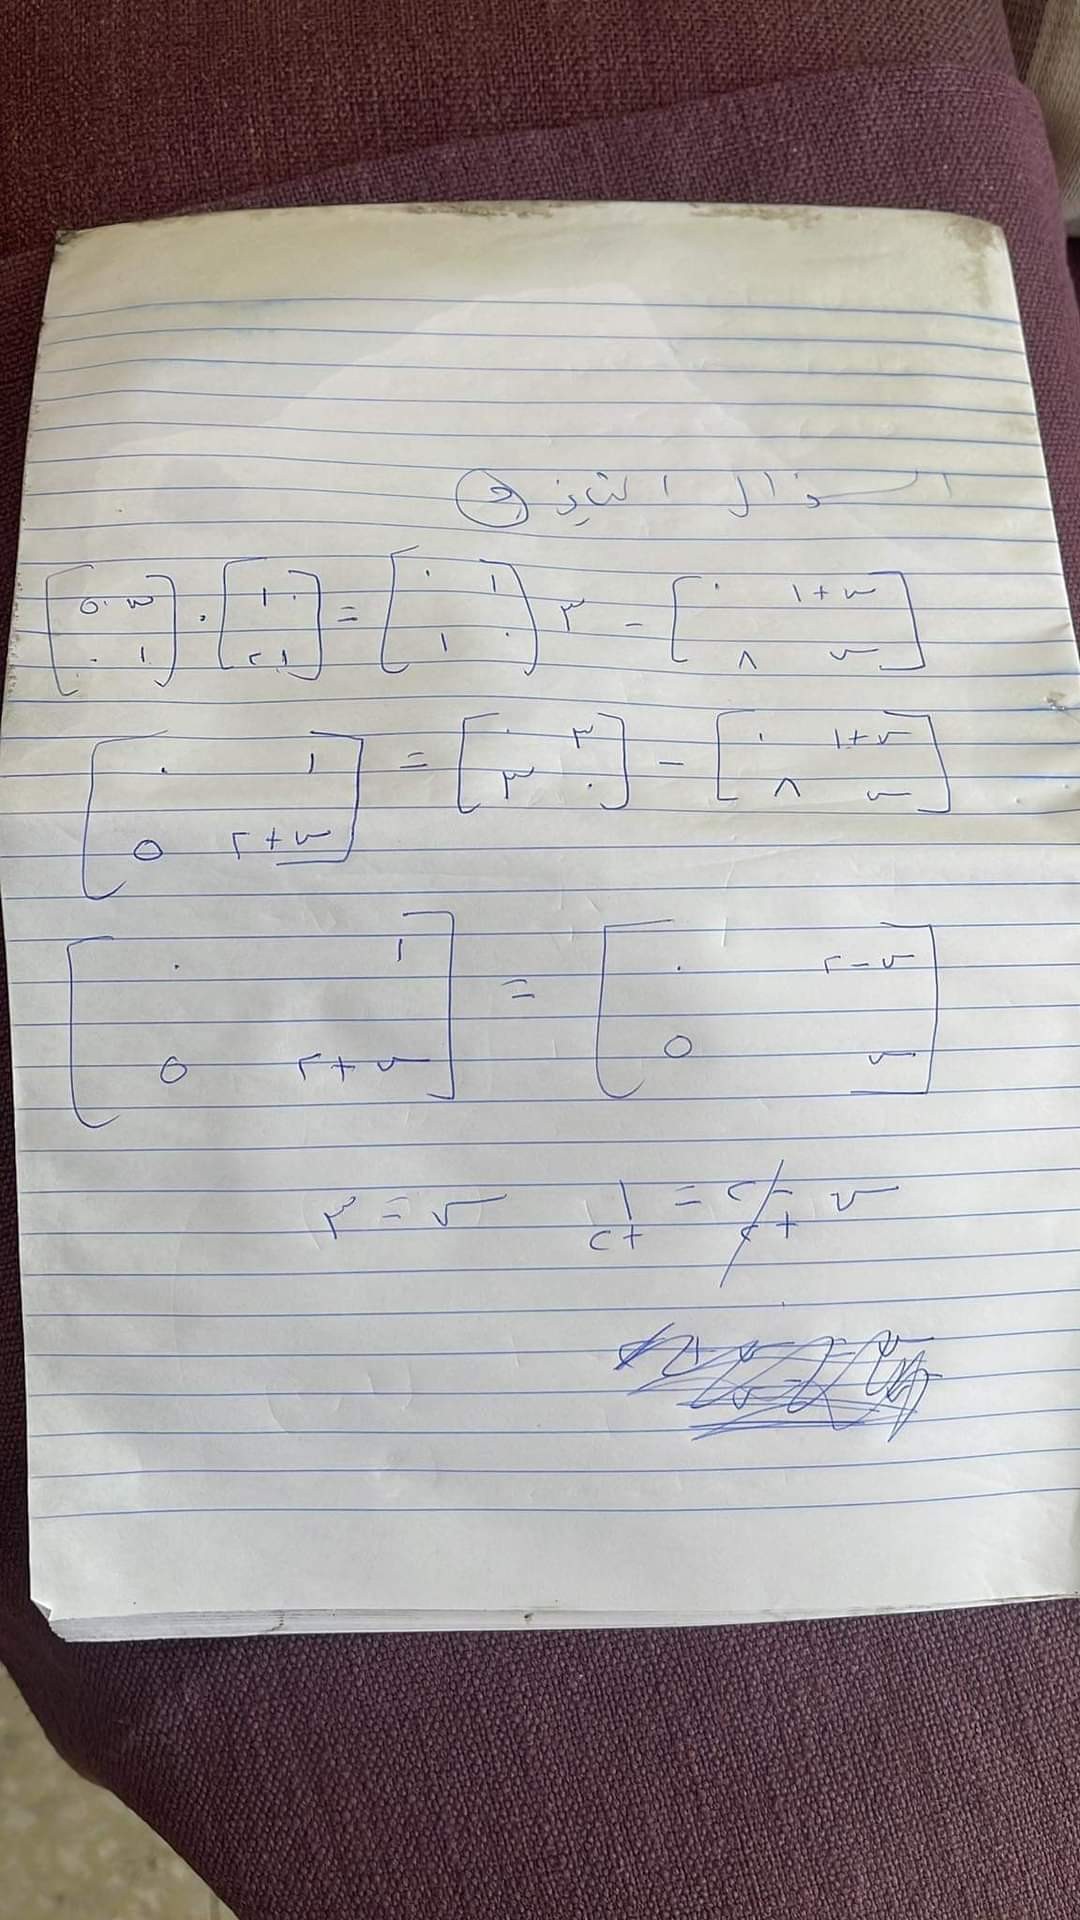 السؤال الثاني ج
[س+١ ٠ / س ٨] - ٣ [١ ٠ / ٠ ١] = [٠ ١ / ١ ٢] . [س ٥ / ١ ٠]
[س+١ ٠ / س ٨] - [٣ ٠ / ٠ ٣] = [١ ٠ / س+٢ ٥]
[س-٢ ٠ / س ٥] = [١ ٠ / س+٢ ٥]
س - ٢ = ١ س = ٣
+٢ +٢